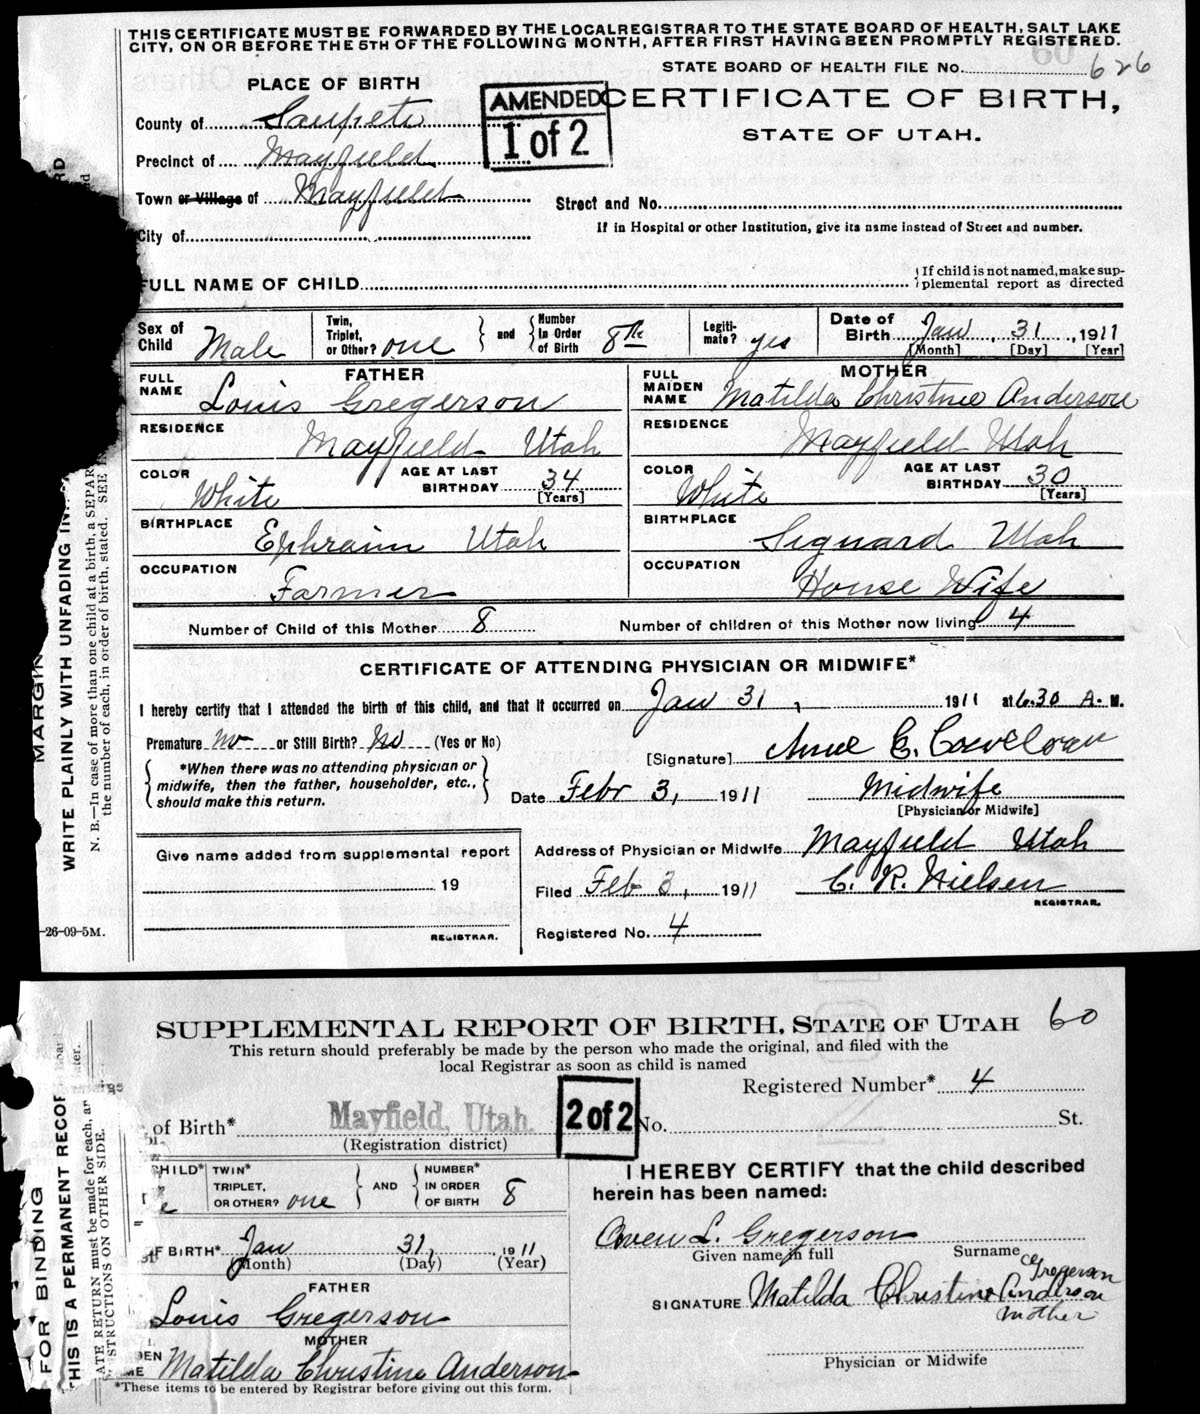 THIS CERTIFICATE MUST BE FORWARDED BY THE LOCAL REGISTRAR TO THE STATE BOARD OF HEALTH, SALT LAKE
CITY, ON OR BEFORE THE 5TH OF THE FOLLOWING MONTH, AFTER FIRST HAVING BEEN PROMPTLY REGISTERED.
STATE BOARD OF HEALTH FILE No. 626
PLACE OF BIRTH
AMENDED
1 of 2
CERTIFICATE OF BIRTH,
STATE OF UTAH.
County of Sanpete
Precinct of Mayfield
Town or Village of Mayfield
Street and No.
City of
If in Hospital or other Institution, give its name instead of Street and number.
FULL NAME OF CHILD
If child is not named, make supplemental report as directed
Sex of Child Male
Twin, Triplet, or Other? one and Number In Order of Birth 8th
Legitimate? yes
Date of Birth Jan 31, 1911
[Month] [Day] [Year]
FATHER
FULL NAME Louis Gregerson
RESIDENCE Mayfield Utah
COLOR White AGE AT LAST BIRTHDAY 34 [Years]
BIRTHPLACE Ephraim Utah
OCCUPATION Farmer
MOTHER
FULL MAIDEN NAME Matilda Christine Anderson
RESIDENCE Mayfield Utah
COLOR White AGE AT LAST BIRTHDAY 30 [Years]
BIRTHPLACE Siguard Utah
OCCUPATION House Wife
Number of Child of this Mother 8 Number of children of this Mother now living 4
CERTIFICATE OF ATTENDING PHYSICIAN OR MIDWIFE*
I hereby certify that I attended the birth of this child, and that it occurred on Jan 31, 1911 at 6.30 A. M.
Premature no or Still Birth? No (Yes or No)
[Signature] Anne C.
*When there was no attending physician or
midwife, then the father, householder, etc.,
should make this return.
Date Febr 3, 1911 Midwife
[Physician or Midwife]
Give name added from supplemental report
19
REGISTRAR.
Address of Physician or Midwife Mayfield Utah
Filed Feb 3, 1911 C. R. Nielsen
REGISTRAR.
Registered No. 4
-26-09-5M.
MARGIN
WRITE PLAINLY WITH UNFADING IN
N. B.—In case of more than one child at a birth, a SEPAR
the number of each, in order of birth, stated. SEE IN
SUPPLEMENTAL REPORT OF BIRTH, STATE OF UTAH 60
This return should preferably be made by the person who made the original, and filed with the
local Registrar as soon as child is named
Registered Number* 4
of Birth* Mayfield, Utah. 2 of 2 No. St.
(Registration district)
CHILD* TWIN* TRIPLET, OR OTHER? one AND NUMBER* IN ORDER OF BIRTH 8
OF BIRTH* Jan 31, 1911
(Month) (Day) (Year)
FATHER
Louis Gregerson
MOTHER
Matilda Christine Anderson
*These items to be entered by Registrar before giving out this form.
I HEREBY CERTIFY that the child described
herein has been named:
Owen L. Gregerson
Given name in full Surname
SIGNATURE Matilda Christine Anderson Gregerson
Mother
Physician or Midwife
FOR BINDING
THIS IS A PERMANENT RECOR
ATE RETURN must be made for each, an
STRUCTIONS ON OTHER SIDE.